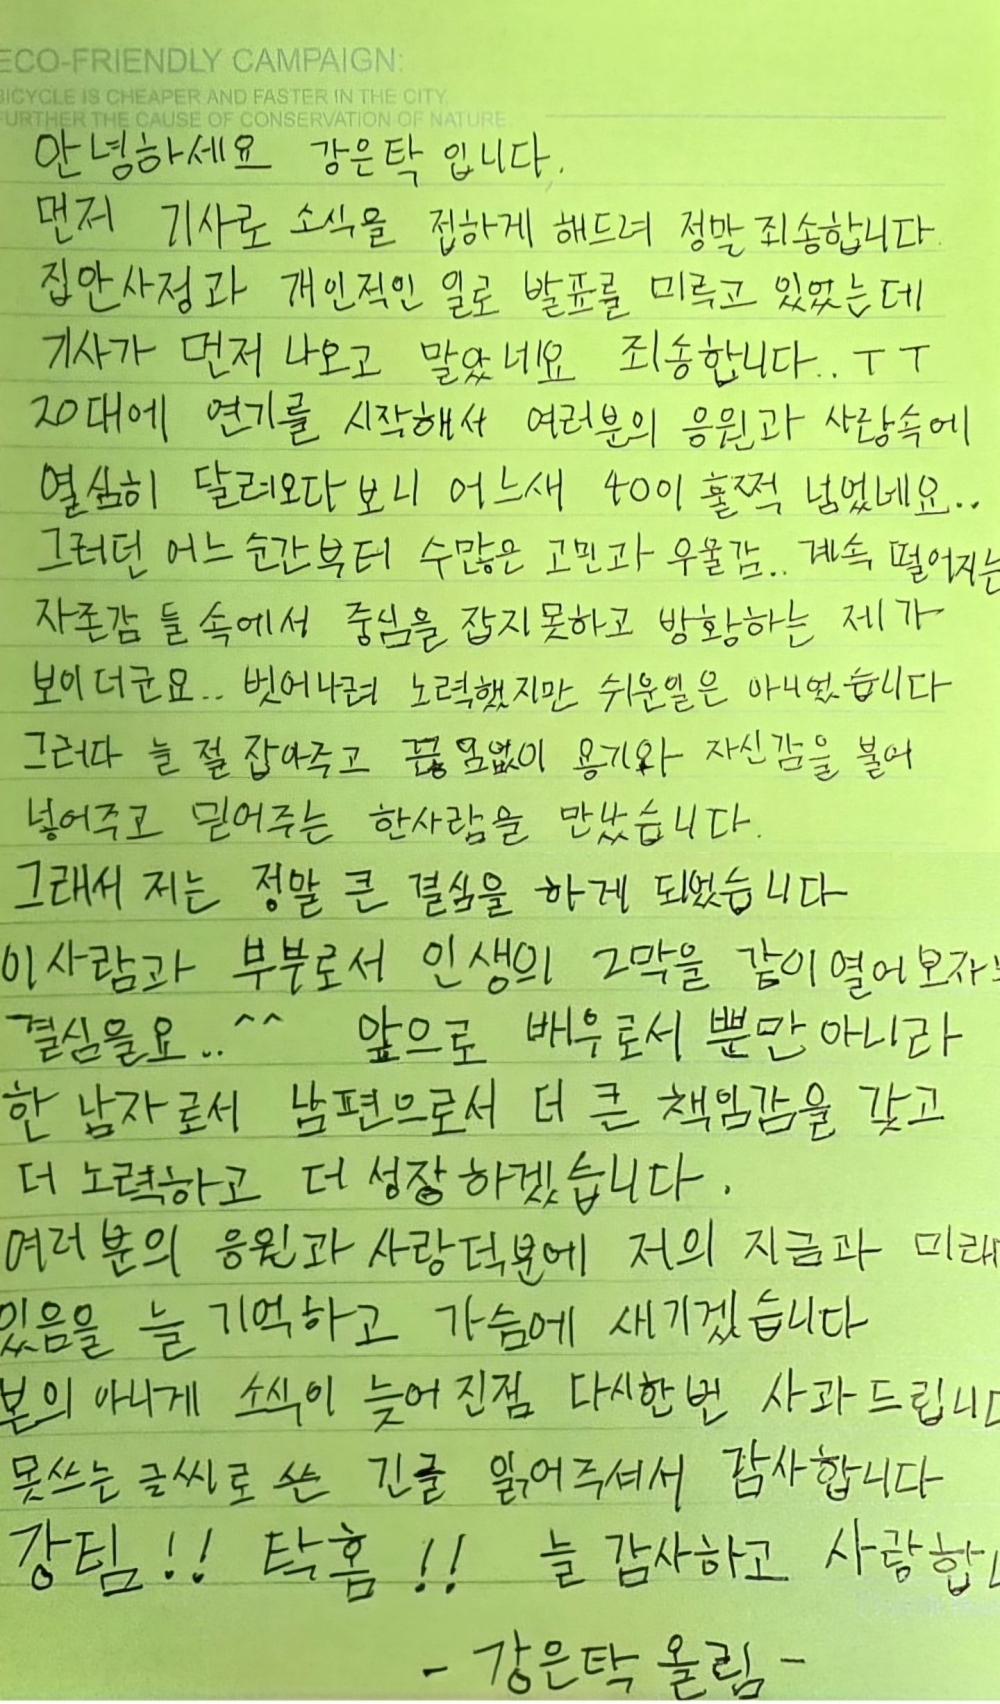 ECO-FRIENDLY CAMPAIGN:
BICYCLE IS CHEAPER AND FASTER IN THE CITY.
FURTHER THE CAUSE OF CONSERVATION OF NATURE.
안녕하세요 강은탁 입니다.
먼저 기사로 소식을 접하게 해드려 정말 죄송합니다.
집안사정과 개인적인 일로 발표를 미루고 있었는데
기사가 먼저 나오고 말았네요 죄송합니다.. ㅜㅜ
20대에 연기를 시작해서 여러분의 응원과 사랑속에
열심히 달려오다보니 어느새 40이 훌쩍 넘었네요..
그러던 어느 순간부터 수많은 고민과 우울감.. 계속 떨어지는
자존감 들 속에서 중심을 잡지못하고 방황하는 제가
보이더군요.. 벗어나려 노력했지만 쉬운일은 아니었습니다
그러다 늘 절 잡아주고 끊임없이 용기와 자신감을 불어
넣어주고 믿어주는 한사람을 만났습니다.
그래서 저는 정말 큰 결심을 하게 되었습니다
이사람과 부부로서 인생의 2막을 같이 열어보자는
결심을요.. ^^ 앞으로 배우로서 뿐만 아니라
한 남자로서 남편으로서 더 큰 책임감을 갖고
더 노력하고 더 성장하겠습니다.
여러분의 응원과 사랑덕분에 저의 지금과 미래
있음을 늘 기억하고 가슴에 새기겠습니다
본의 아니게 소식이 늦어진점 다시한번 사과드립니다
못쓰는 글씨로 쓴 긴글 읽어주셔서 감사합니다
강팀!! 탁홈!! 늘 감사하고 사랑합니
- 강은탁 올림 -